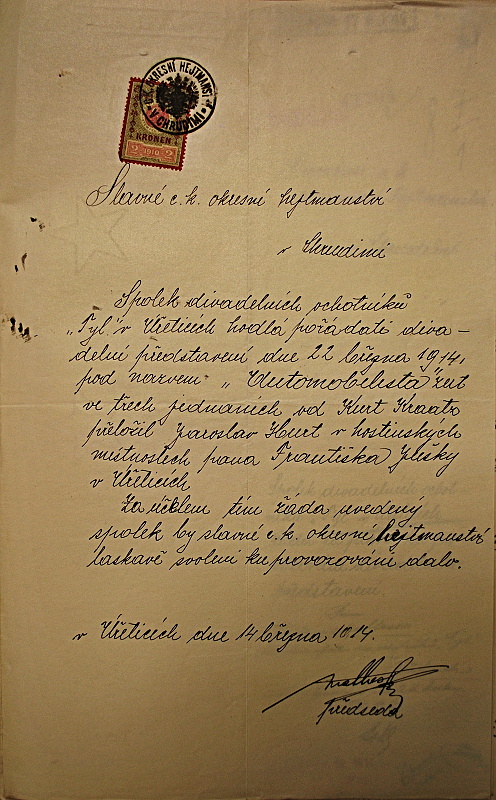 C.K. OKRESNÍ HEJTMANSTVÍ
V CHRUDIMI
KRONEN
2 1910 2
Slavné c. k. okresní hejtmanství
v Chrudimi
Spolek divadelních ochotníků
„Tyl" v Úřeticích hodlá pořádati diva-
delní představení dne 22 března 1914,
pod názvem „Automobilista" žert
ve třech jednáních od Kurt Kraatz
přeložil Jaroslav Hurt v hostinských
místnostech pana Františka Jelišky
v Úřeticích
Za účelem tím žádá uvedený
spolek by slavné c. k. okresní hejtmanství
laskavě svolení ku provozování dalo.
v Úřeticích dne 14 března 1914.
předseda